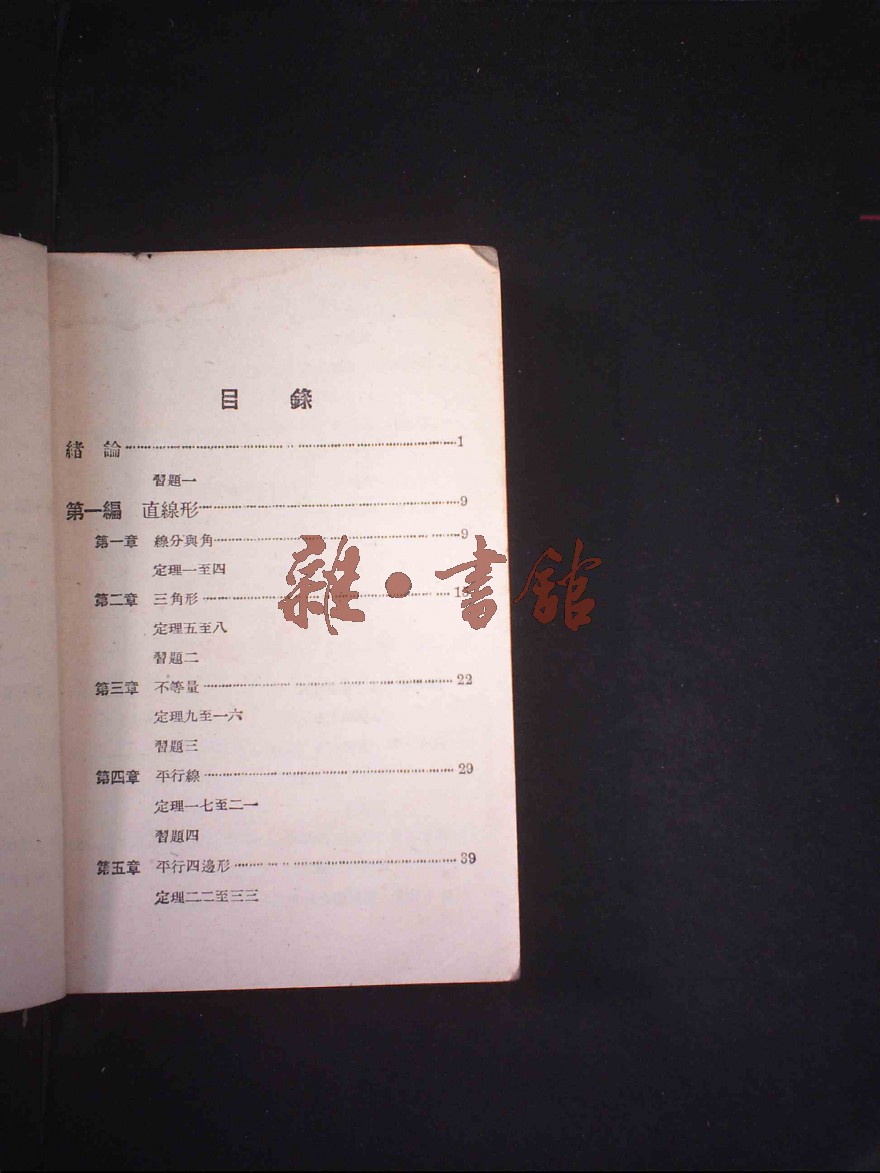 目 錄
緒 論 1
習題一
第一編 直線形 9
第一章 線分與角 9
定理一至四
第二章 三角形
定理五至八
習題二
第三章 不等量 22
定理九至一六
習題三
第四章 平行線 29
定理一七至二一
習題四
第五章 平行四邊形 39
定理二二至三三
雜·書館